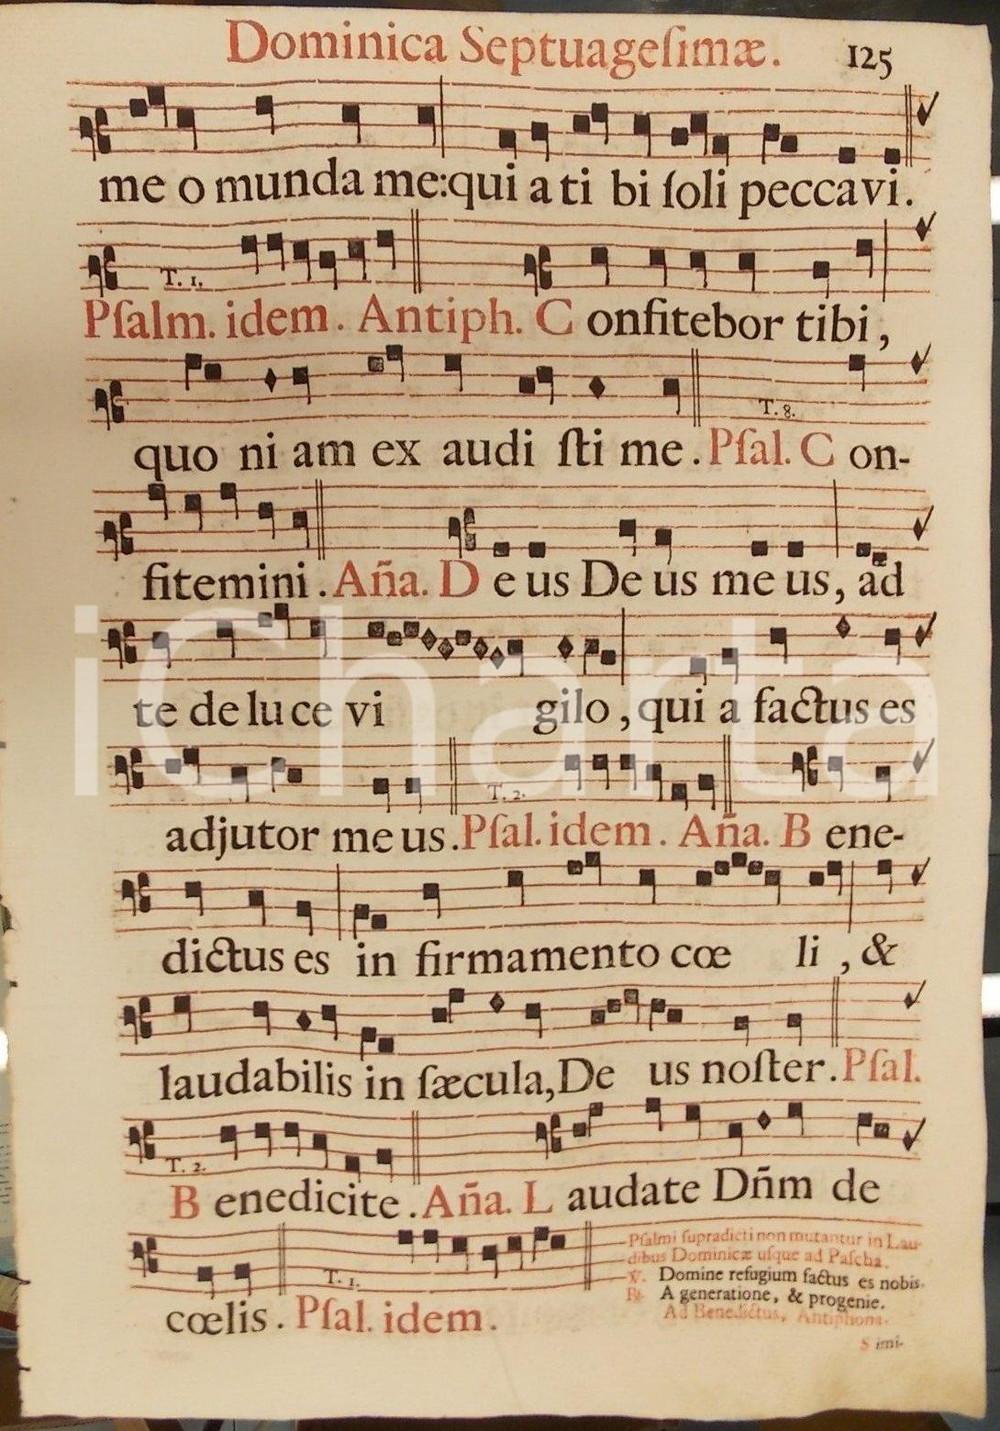 Dominica Septuageſimæ. 125
me o munda me: qui a ti bi ſoli peccavi.
T. 1.
Pſalm. idem. Antiph. C onfitebor tibi,
T. 8.
quo ni am ex audi ſti me. Pſal. C on-
fitemini. Aña. D e us De us me us, ad
te de lu ce vi gilo, qui a factus es
T. 2.
adjutor me us. Pſal. idem. Aña. B ene-
dictus es in firmamento cœ li, &
laudabilis in ſæcula, De us noſter. Pſal.
T. 2.
B enedicite. Aña. L audate Dñm de
T. 1.
cœlis. Pſal. idem.
Pſalmi ſupradicti non mutantur in Lau-
dibus Dominicæ uſque ad Paſcha.
℣. Domine refugium factus es nobis.
℟. A generatione, & progenie.
Ad Benedictus, Antiphona.
S imi-
iCharta